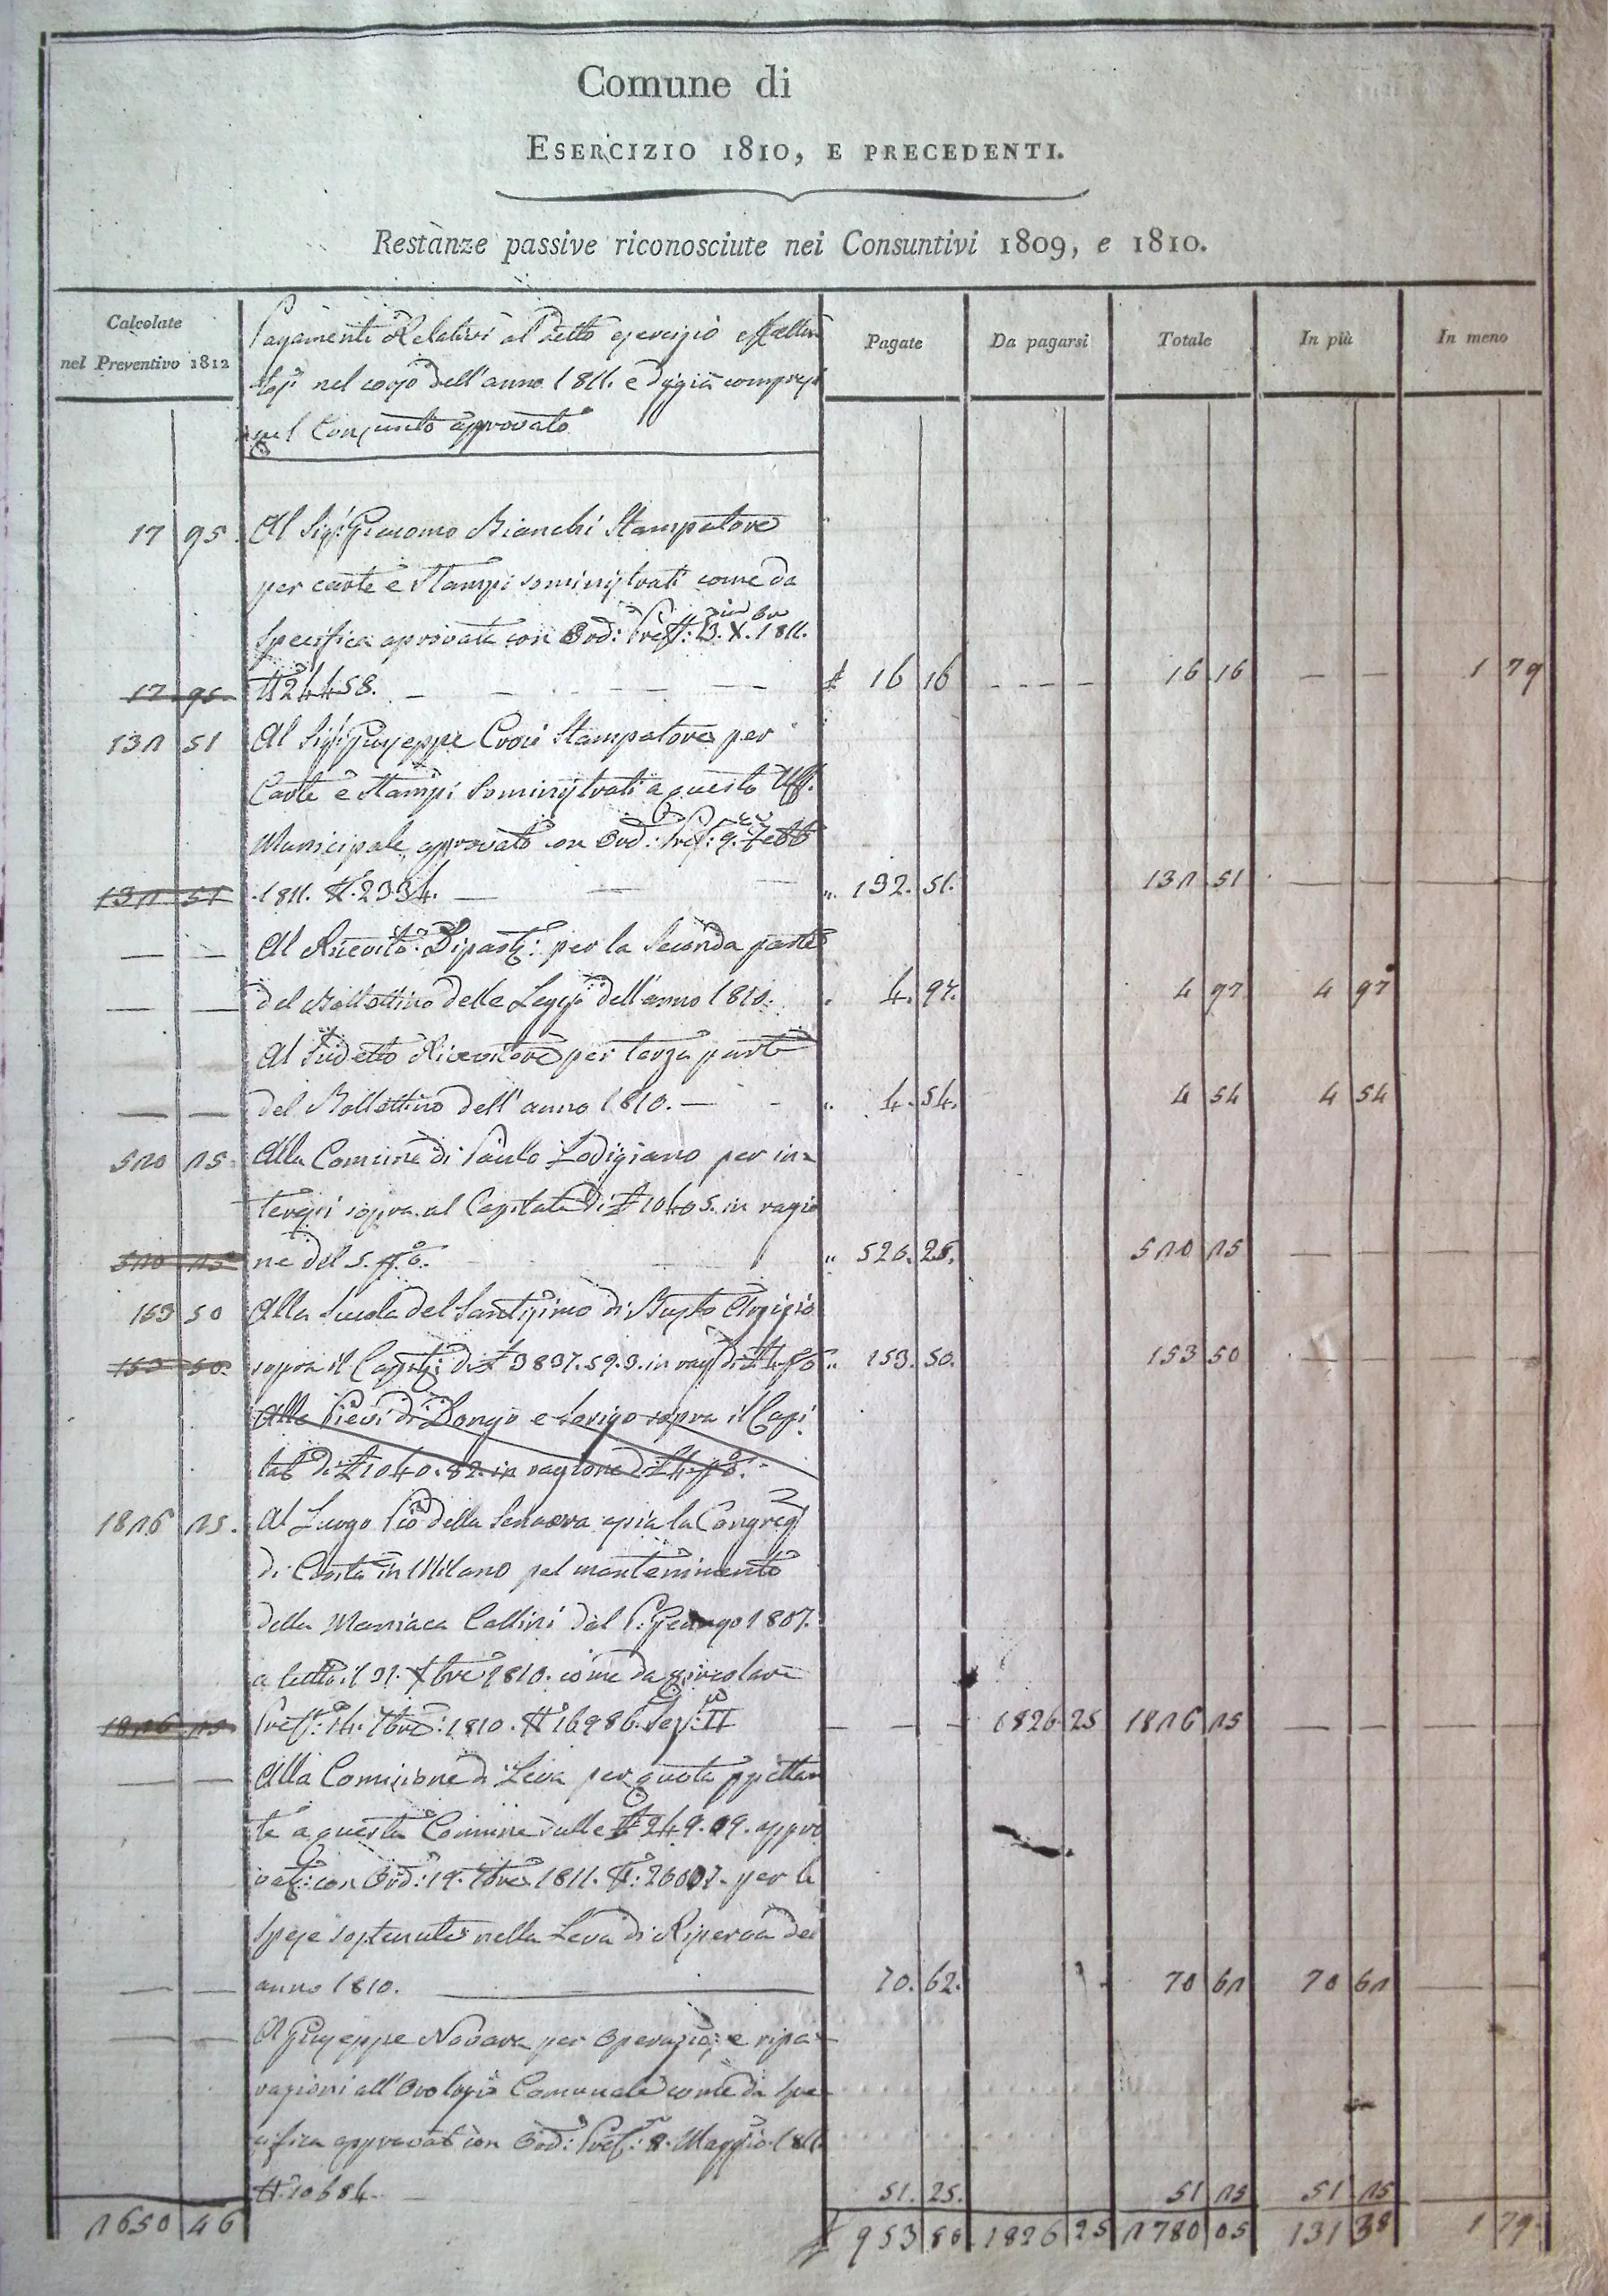 Comune di
ESERCIZIO 1810, E PRECEDENTI.
Restanze passive riconosciute nei Consuntivi 1809, e 1810.
Calcolate
nel Preventivo 1812
Pagamenti Relativi al detto esercizio
nel corso dell'anno 1811. e di già compresi
nel Consunto approvato
Pagate
Da pagarsi
Totale
In più
In meno
17 95. Al Sigr. Giacomo Bianchi Stampatore
per carte e Stampi somministrati come da
Specifica aprovata con Ord: Preff: 13. X. 1811.
17 95 N° 24458. — — — — — £ 16 16 - - - - 16 16 — — 1 79
132 51 Al Sigr. Giuseppe Croci Stampatore per
Carte e Stampi Somministrati a questo Uff.
Municipale, approvato con Ord: Pref: 9.
132 51 1811. N. 2334. — — — „ 132. 51. 132 51 — — —
— — Al Ricevit: Dipart: per la Seconda parte
— — del Bollettino delle Leggi dell'anno 1810. „ 4. 97. 4 97 4 97
Al Sudetto Ricevitore per terza parte
— — del Bollettino dell'anno 1810. — - „ 4. 54. 4 54 4 54
520 25. Alla Comune di Paullo Lodigiano per in=
teressi sopra al Capitale di £ 10405. in ragio
520 25 ne del 5. p.% „ 520. 25. 520 25 — — —
153 50 Alla Scuola del Santissimo di Busto Arsizio
153 50. sopra il Capit: di £ 3837. 59. 3. in rag: di £ 4. p% „ 153. 50. 153 50 — — —
Alle Pievi di Dongo e Sorigo sopra il Capi
tal di £ 1040. 82. in ragione di £ 4. p.%
1826 25. Al Luogo Pio della Senavra ossia la Congreg.
di Carità in Milano pel mantenimento
della Maniaca Collini dal P: Genajo 1807.
a tutto il 31. Xbre 1810. come da circolare
1826 25 Preff: 14. 7bre: 1810. N° 16986. Sez: II — — — 1826 25 1826 25 — — — —
— — Alla Comissione di Leva per quota spettan
te a questa Comune sulle £ 249. 09. appro
vat: con Ord: 19. 1811. N: 26007. per le
spese sostenute nella Leva di Riserva del
— — anno 1810. — 70. 62. 70 62 70 62 — —
— — A Giuseppe Novara per operazio: e ripa=
razioni all'Orologio Comunale come da Spe
cifica approvat con Ord: Pref: 8. Maggio 1811.
N. 10684. — 51. 25. 51 25 51 25 — —
2650 46 £ 953 80 1826 25 2780 05 131 38 1 79